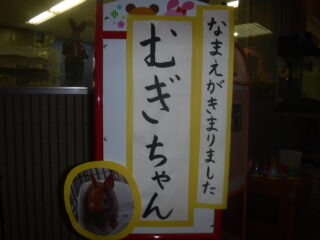 なまえがきまりました
むぎちゃん